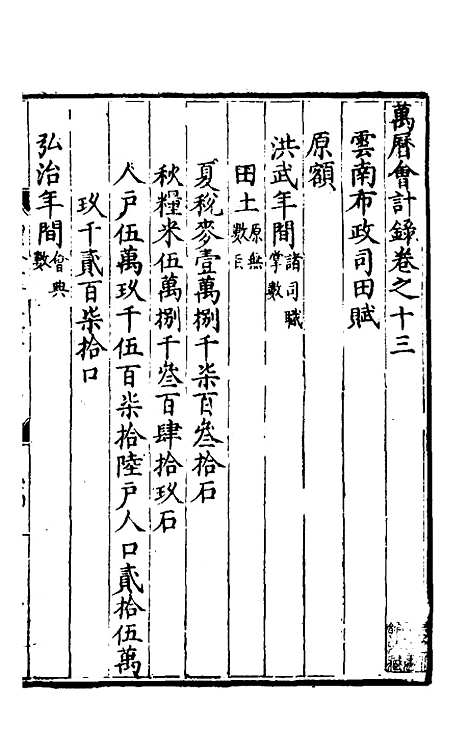 萬曆會計錄卷之十三
雲南布政司田賦
原額
洪武年間諸司職掌數
田土原無數目
夏稅麥壹萬捌千柒百叁拾石
秋糧米伍萬捌千叁百肆拾玖石
人戶伍萬玖千伍百柒拾陸戶人口貳拾伍萬
玖千貳百柒拾口
弘治年間會典數